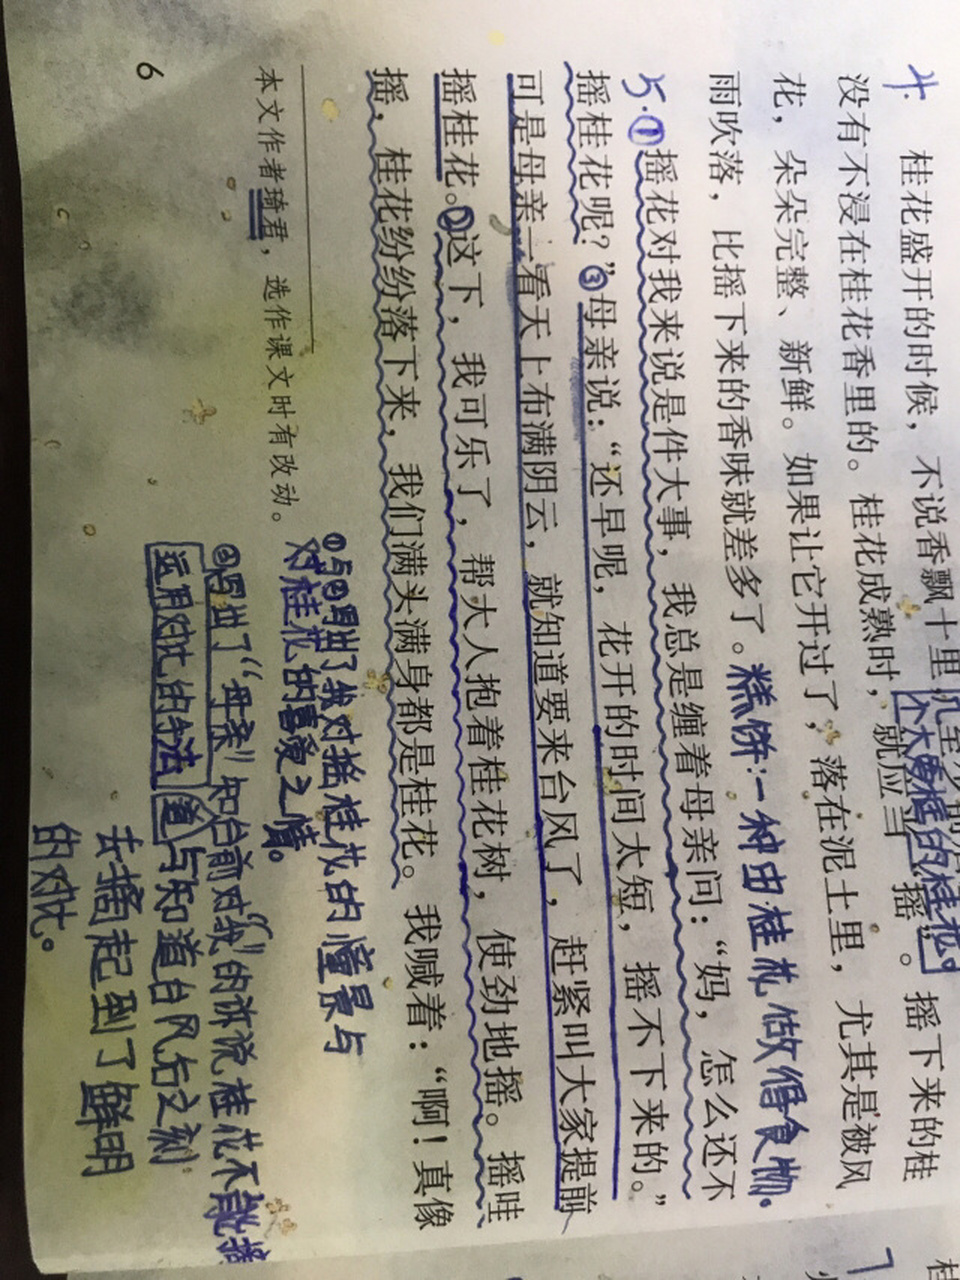 4.
桂花盛开的时候，不说香飘十里，
没有不浸在桂花香里的。桂花成熟时，就应当“摇”。摇下来的桂
花，朵朵完整、新鲜。如果让它开过了，落在泥土里，尤其是被风
雨吹落，比摇下来的香味就差多了。
糕饼：一种由桂花做得食物。
5.①摇花对我来说是件大事，我总是缠着母亲问：“妈，怎么还不
摇桂花呢？”③母亲说：“还早呢，花开的时间太短，摇不下来的。”
可是母亲一看天上布满阴云，就知道要来台风了，赶紧叫大家提前
摇桂花。②这下，我可乐了，帮大人抱着桂花树，使劲地摇。摇哇
摇，桂花纷纷落下来，我们满头满身都是桂花。我喊着：“啊！真像
本文作者琦君，选作课文时有改动。
6
①与②写出了我对摇桂花的童景与
对桂花的喜爱之情。
③写出了“母亲”知台前对“我”的诉说桂花不能摇
与知道台风后之刻
运用对比的手法
去摇起到了鲜明
的对比。